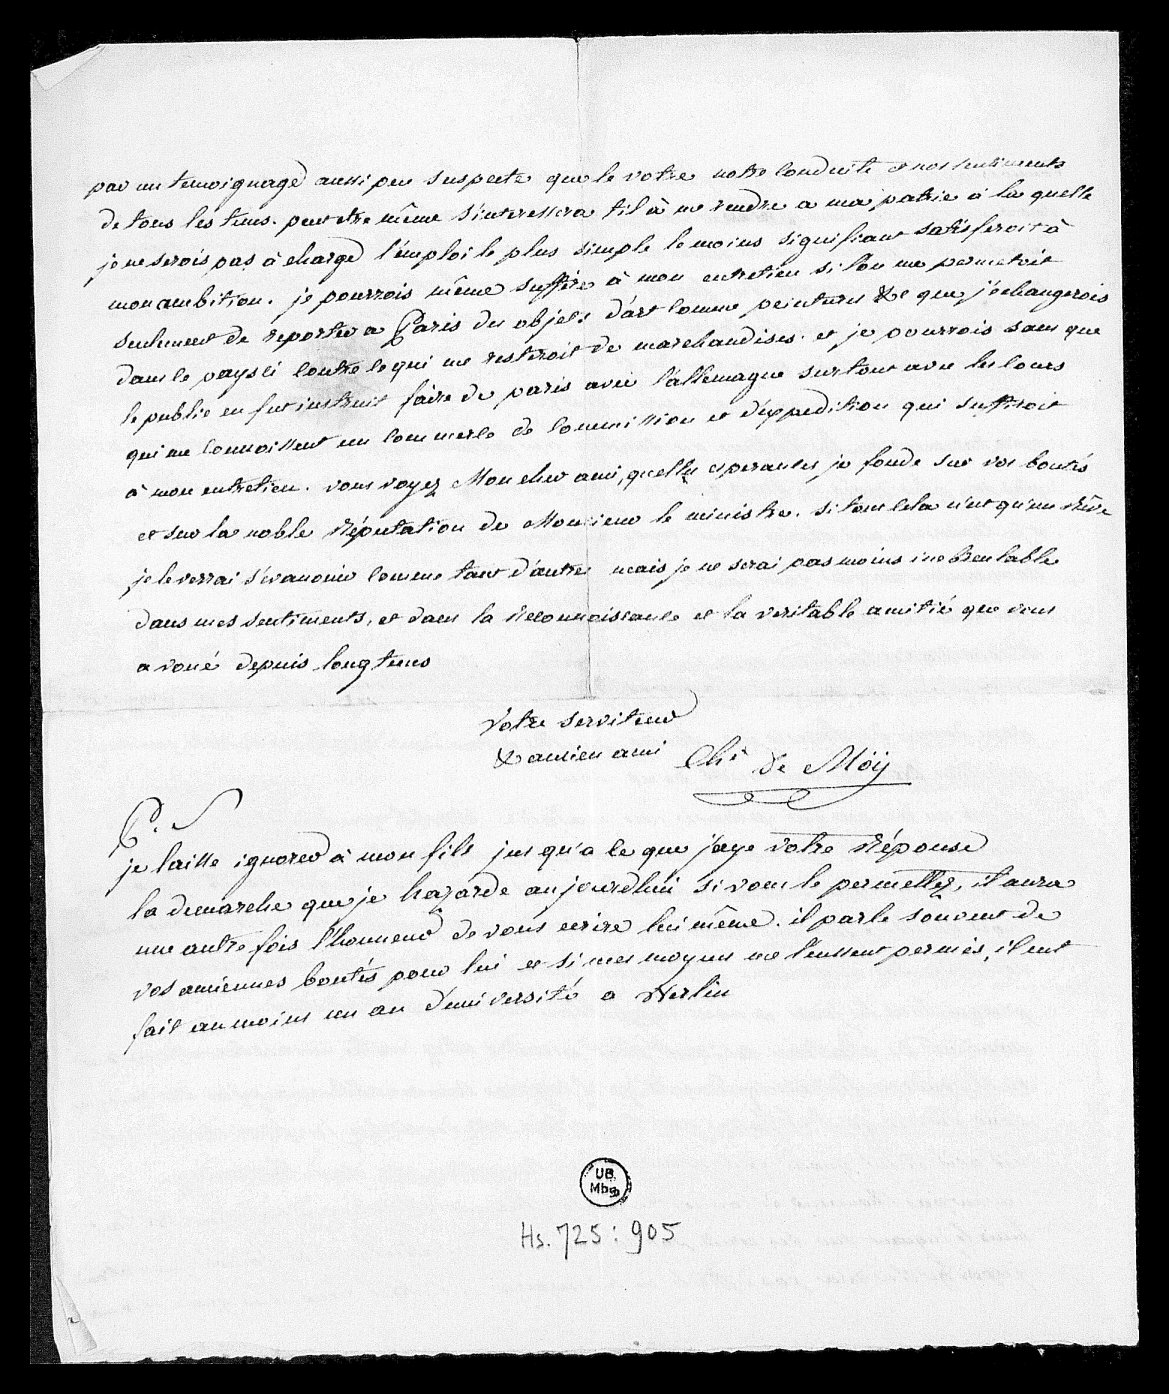 par un temoignage aussi peu suspecte que le votre notre conduite et nos sentiments
de tous les tems. peut etre même s'interessera t'il à me rendre a ma patrie à la quelle
je ne serois pas à charge l'emploi le plus simple le moins signifiant satisferoit à
mon ambition. je pourrois même suffire à mon entretien si l'on me permetoit
seulement de reporter a Paris des objets d'art comme peintures &c que j'échangerois
dans le pays ci contre ce qui me resteroit de marchandises. et je pourrois sans que
le public en fut instruit faire de paris avec l'allemagne surtout avec les cours
qui me connoissent un commerce de commission et d'expedition qui suffiroit
à mon entretien. vous voyez Mon cher ami, quelles esperances je fonde sur vos bontés
et sur la noble réputation de Monsieur le ministre. si tout cela n'est qu'un rêve
je le verrai s'evanouir comme tant d'autres mais je ne serai pas moins inebranlable
dans mes sentiments, et dans la reconnoissance et la veritable amitié que vous
a voué depuis longtems
Votre serviteur
& ancien ami Chr de Möy
P. S
je laisse ignorer à mon fils jusqu'a ce que j'aye votre réponse
la demarche que je hazarde aujourdhui si vous le permettez, il aura
une autre fois l'honneur de vous ecrire lui même. il parle souvent de
vos anciennes bontés pour lui et si mes moyens me l'eussent permis, il eut
fait au moins un an d'université a Berlin
UB
Mbg
Hs. 725 : 905